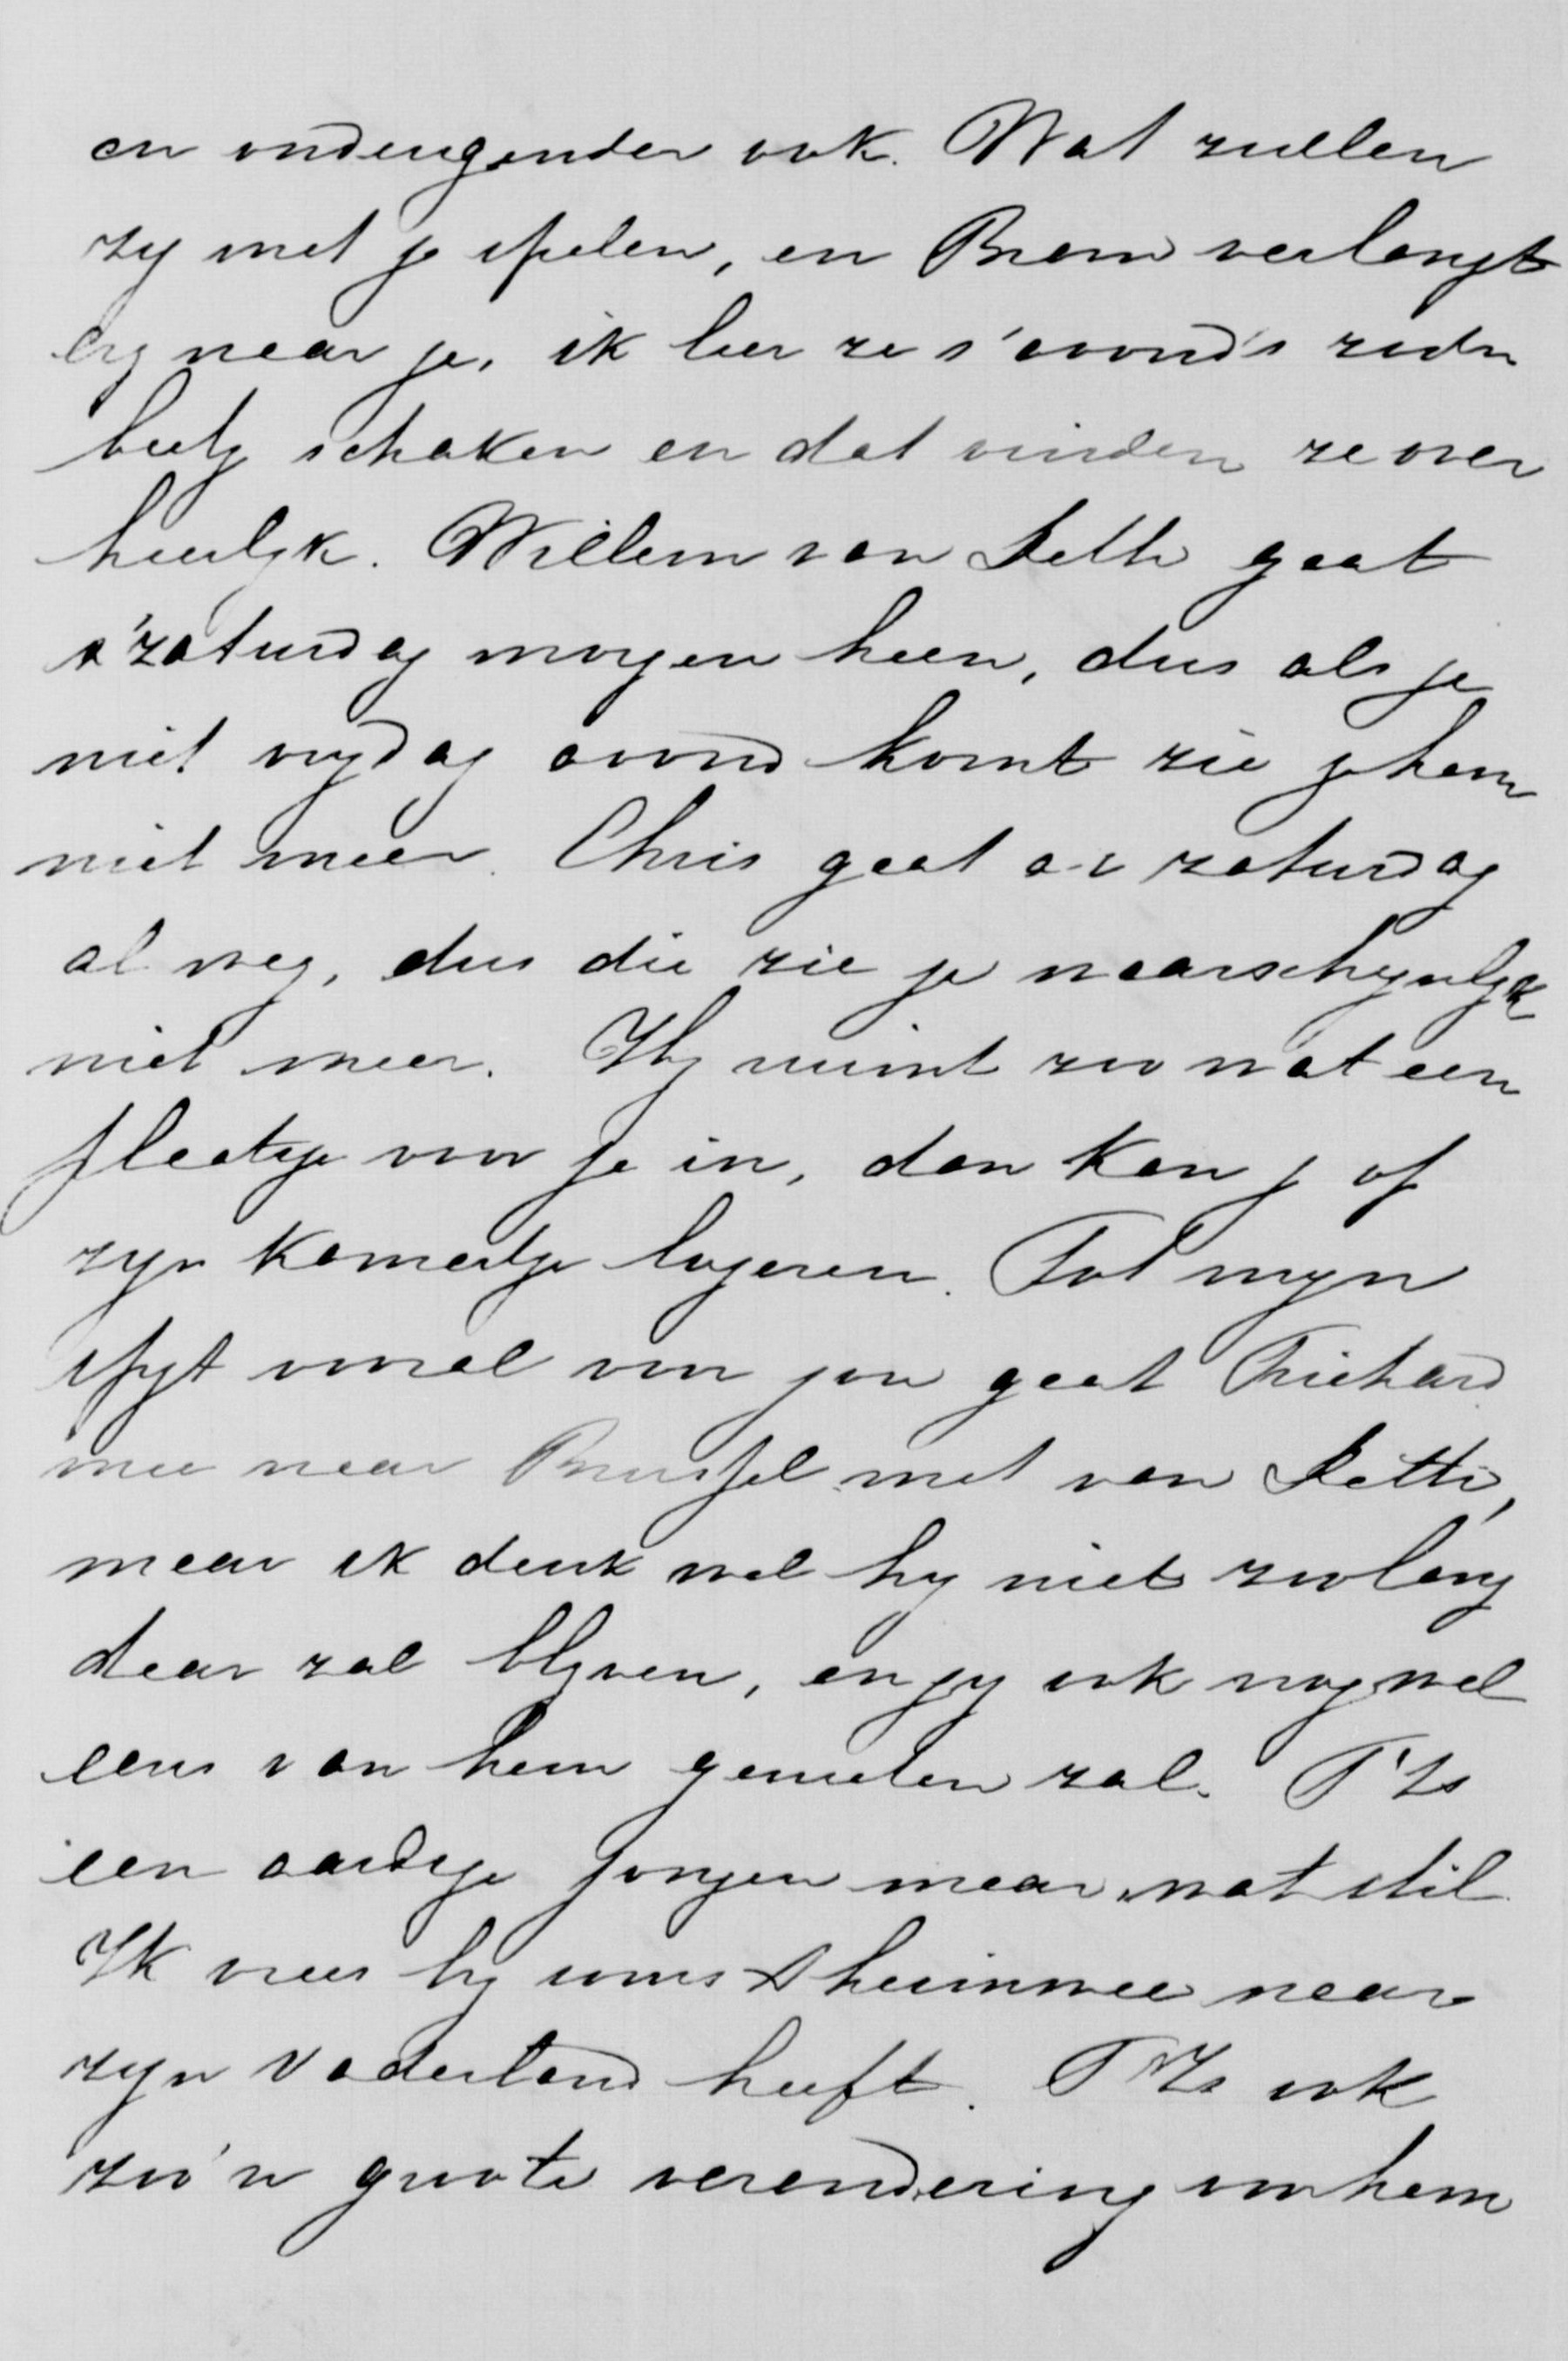 en ondeugender ook. Wat zullen
zy met je spelen, en Bram verlangt
erg naar je, ik leer ze s'avond's zoo'n
beetje schaken en dat vinden ze over
heerlyk. Willem van gaat
s'zaturdag morgen heen, dus als je
niet vrydag avond komt zie je hem
niet meer. Chris gaat a.s zaturdag
al weg, dus die zie je waarschynlyk
niet meer. Hy ruimt zoo wat een
plaatsje voor je in, dan kan je op
zyn kamertje logeren. Tot myn
spyt vooral voor jou gaat Richard
mee naar Brussel met van
maar ik denk wel hy niet zoolang
daar zal blyven, en jy ook nog wel
eens van hem genieten zal. T'Is
een aardige jongen maar wat stil
Ik vrees hy soms heimwee naar
zyn Vaderland heeft. T'Is ook
zoo'n groote verandering voor hem